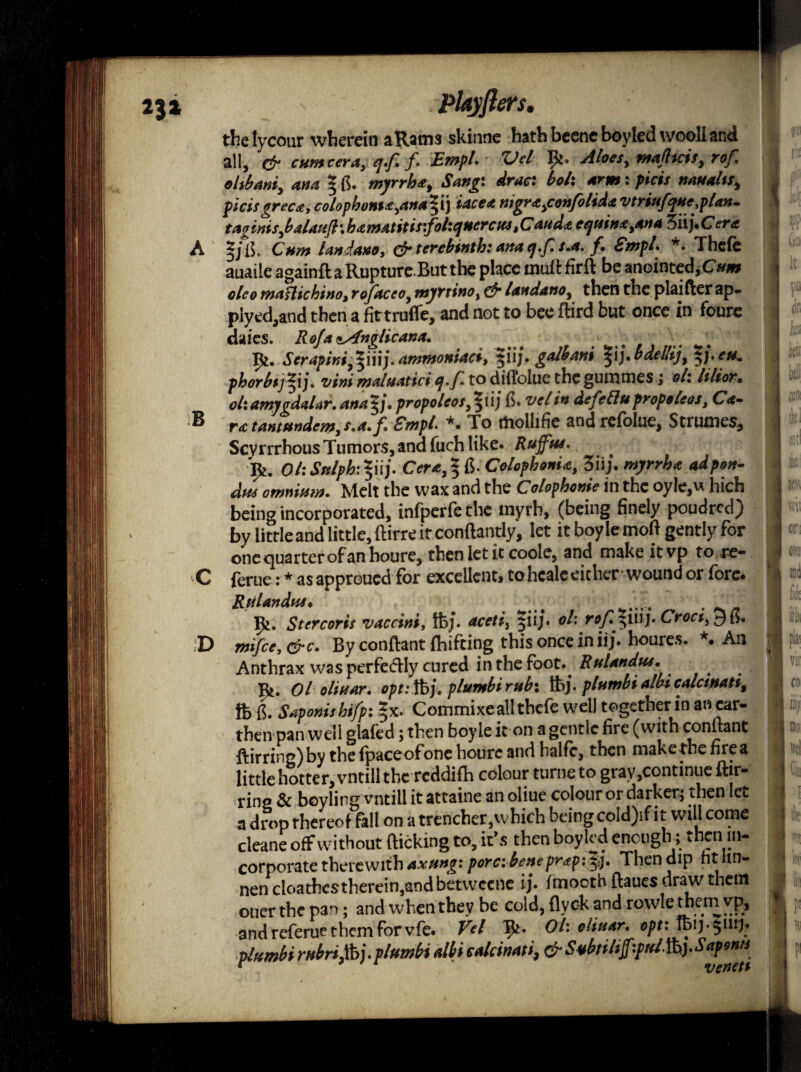 232 Playsters.
the lycour wherein a Rams skinne hath beene boyled wooll and
all, & cum cera, q.s. f. Empl. Vel ℞. Aloes, masticis, ros.
olibani, ana ℥ ß. myrrhæ, Sang: drac: bol: arm: picis naualis,
picis grecæ, colophoniæ, ana ℥ij iaceæ nigræ, consolidæ vtriusque, plan-
taginis, balaust: hæmatitis: fol: quercus, Caudæ equinæ, ana ʒiij. Ceræ
A ℥j ß. Cum landano, & terebinth: ana q.s. s.a. f. Empl. *. These
auaile against a Rupture. But the place must first be anointed, Cum
oleo mastichino, rosaceo, myrtino, & landano, then the plaister ap-
plyed, and then a fit trusse, and not to bee stird but once in foure
daies. Rosa Anglicana.
℞. Serapini, ℥iiij. ammoniaci, ℥iij. galbani ℥ij. bdellij, ℥j. eu.
phorbij ℥ij. vini maluatici q.s. to dissolue the gummes; ol: lilior.
ol: amygdalar. ana ℥j. propoleos, ℥iij ß. vel in defectu propoleos, Ce-
B ræ tantundem, s.a. f. Empl. *. To mollifie and resolue, Strumes,
Scyrrrhous Tumors, and such like. Ruffus.
℞. Ol: Sulph: ℥iij. Ceræ, ℥ ß. Colophoniæ, ʒiij. myrrhæ ad pon-
dus omnium. Melt the wax and the Colophonie in the oyle, which
being incorporated, insperse the myrh, (being finely poudred)
by little and little, stirre it constantly, let it boyle most gently for
one quarter of an houre, then let it coole, and make it vp to re-
C serue: * as approued for excellent, to heale either wound or sore.
Rulandus.
℞. Stercoris vaccini, ℔j. aceti, ℥iij. ol: ros. ℥iiij. Croci, ℈ ß.
D misce, &c. By constant shifting this once in iij. houres. *. An
Anthrax was perfectly cured in the foot. Rulandus.
℞. Ol oliuar. opt: ℔j. plumbi rub: ℔j. plumbi albi calcinati,
℔ ß. Saponis hisp: ℥x. Commixe all these well together in an ear-
then pan well glased; then boyle it on a gentle fire (with constant
stirring) by the space of one houre and halfe, then make the fire a
little hotter, vntill the reddish colour turne to gray, continue stir-
ring & boyling vntill it attaine an oliue colour or darker; then let
a drop thereof fall on a trencher, which being cold) if it will come
cleane off without sticking to, it's then boyled enough; then in-
corporate therewith axung: porc: bene præp: ℥j. Then dip fit lin-
nen cloathes therein, and betweene ij. smooth staues draw them
ouer the pan; and when they be cold, slyck and rowle them vp,
and reserue them for vse. Vel ℞. Ol: oliuar. opt: ℔ij. ℥iiij.
plumbi rubri, ℔j. plumbi albi calcinati, & Subtiliss: pul. ℔j. Saponis
veneti